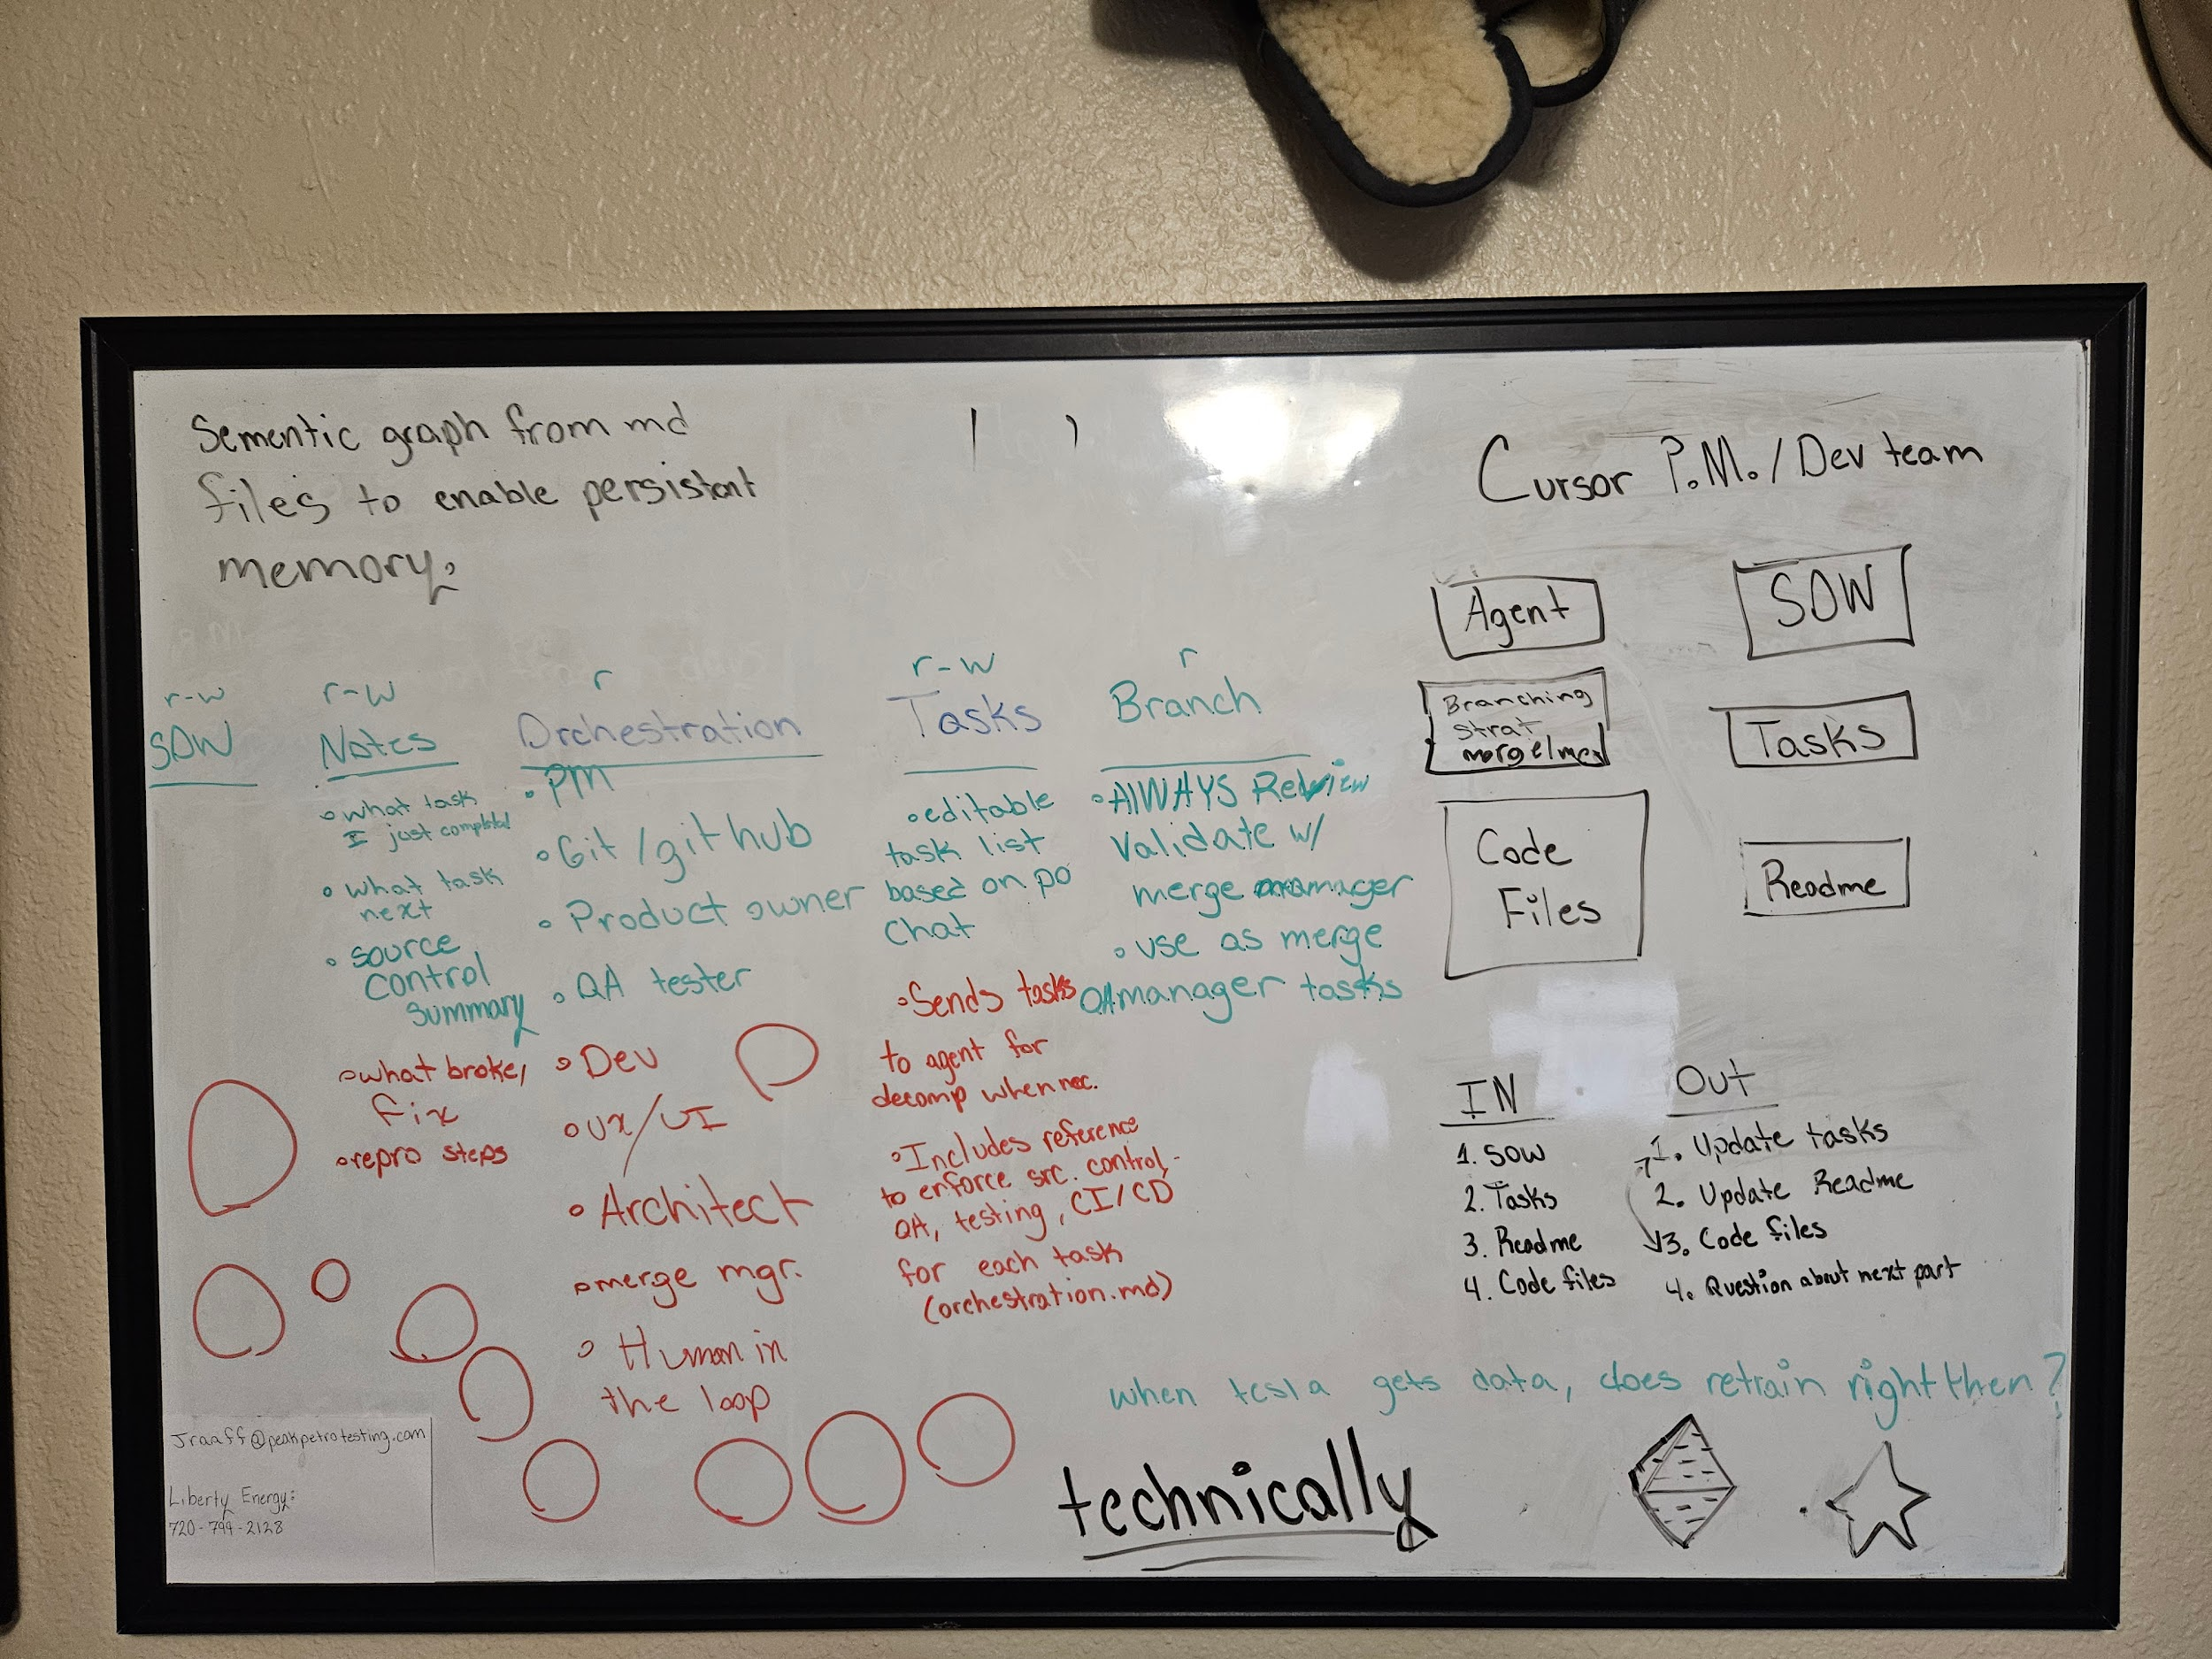 Sementic graph from md
files to enable persistant
memory:
r-w
SOW
r-w
Notes
• what task
I just completed
• what task
next
• source
control
summary
• what broke,
fix
• repro steps
r
Orchestration
• PM
• Git/github
• Product owner
• QA tester
• Dev
• UX/UI
• Architect
• merge mgr.
• Human in
the loop
r-w
Tasks
• editable
task list
based on po
chat
• Sends tasks
to agent for
decomp when nec.
• Includes reference
to enforce src. control,
QA, testing, CI/CD
for each task
(orchestration.md)
r
Branch
• AlWAYS Review
Validate w/
merge manager
• use as merge
manager tasks
Cursor P.M./Dev team
Agent
SOW
Branching
strat
Tasks
Code
Files
Readme
IN
1. SOW
2. Tasks
3. Readme
4. Code files
OUT
1. Update tasks
2. Update Readme
3. Code files
4. Question about next part
when tesla gets data, does retrain right then?
technically
Jraaff@peakpetrotesting.com
Liberty Energy:
720-799-2128